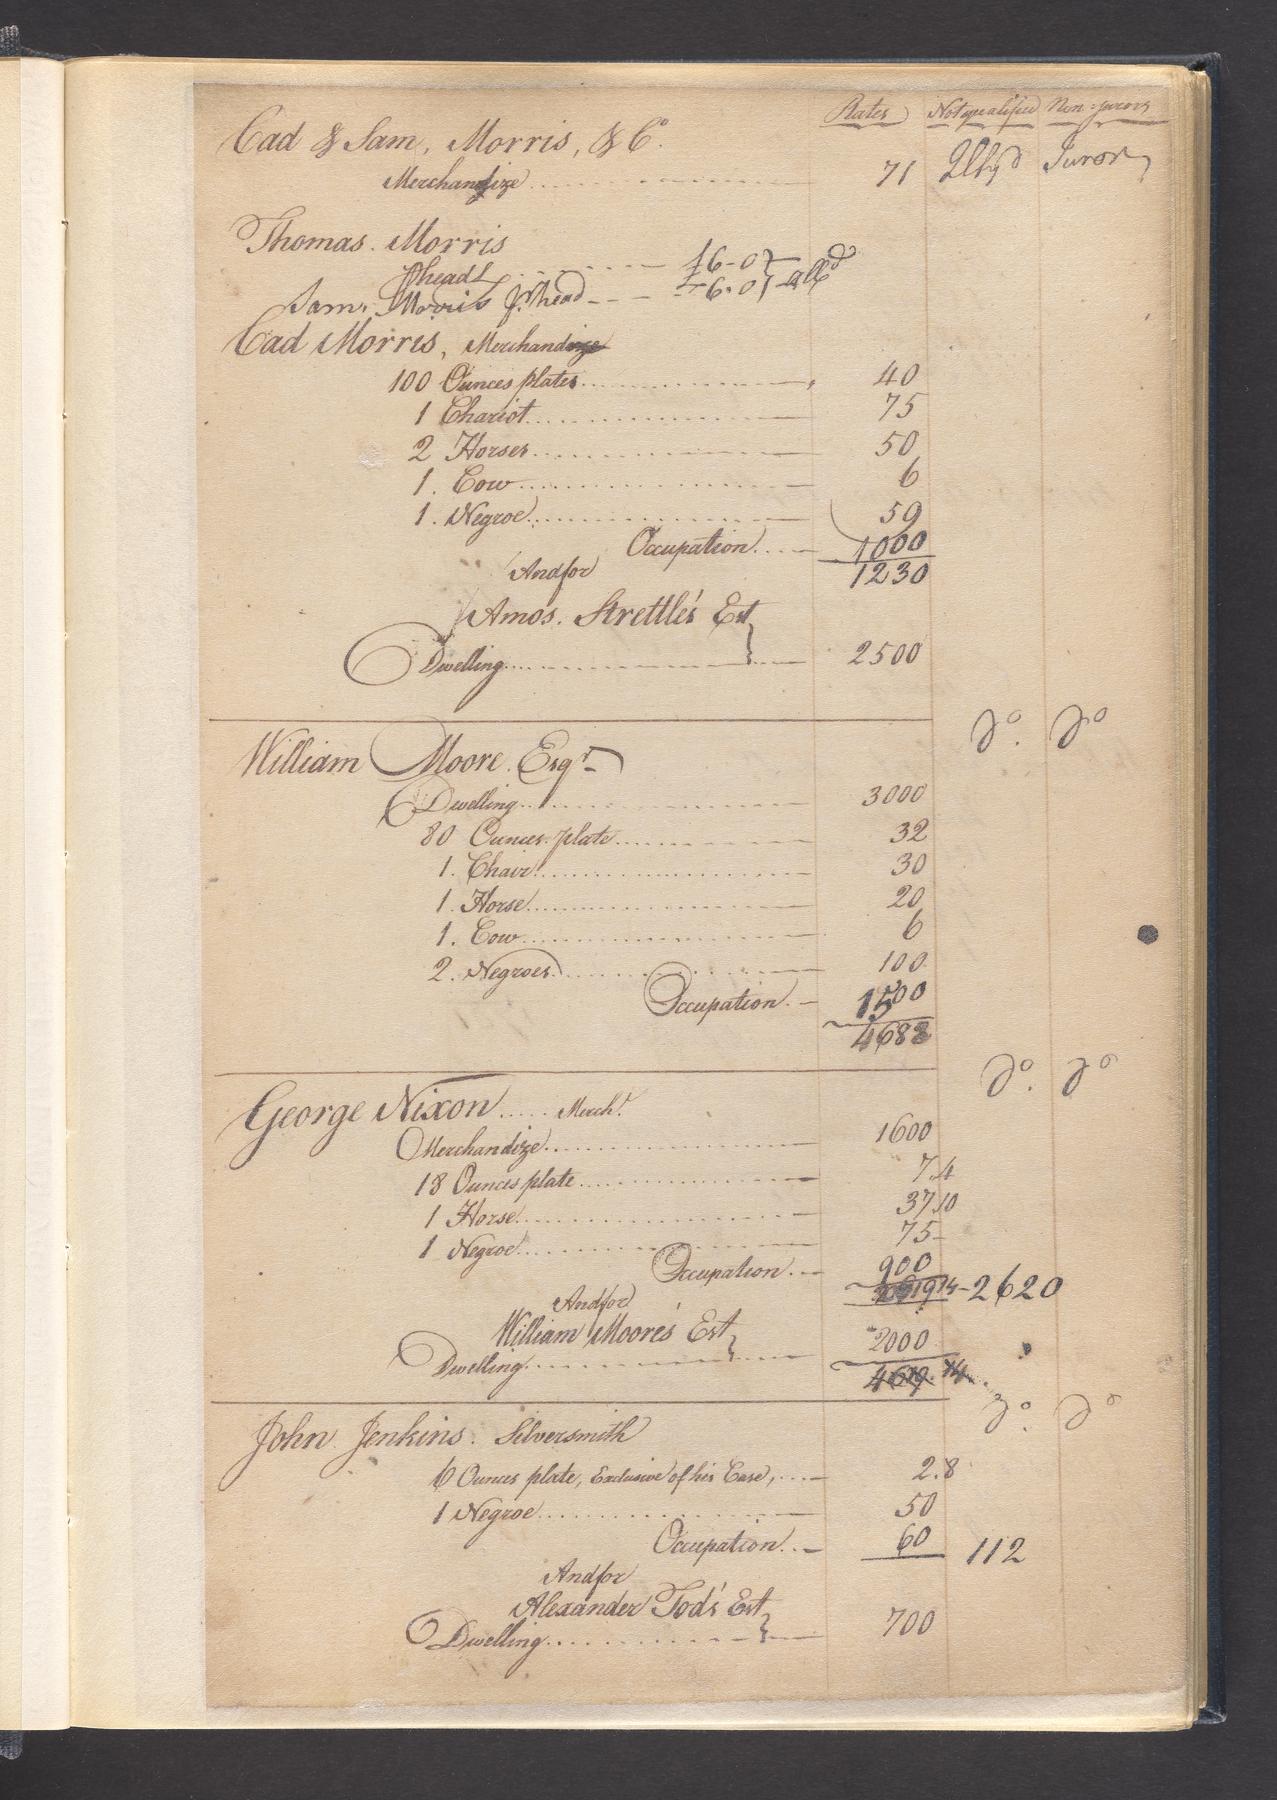 Rates Not qualified Non-jurors
Cad & Sam, Morris, & Co.
Merchandize 71 Juror
Thomas Morris
phead £6-0
Sam. Morris Jr. phead 6-0
Cad Morris, Merchandize
100 Ounces plates 40
1 Chariot 75
2 Horses 50
1. Cow 6
1. Negroe 59
Occupation 1000
And for 1230
Amos. Strettle's Est
Dwelling 2500
Do. Do
William Moore. Esqr
Dwelling 3000
80 Ounces plate 32
1. Chair 30
1. Horse 20
1. Cow 6
2. Negroes 100
Occupation 1500
4688
Do. Do
George Nixon Mercht.
Merchandize 1600
18 Ounces plate 7.4
1 Horse 37.10
1 Negroe 75-
Occupation 900
14-2620
And for
William Moore's Est
2000
Dwelling
4619.14
Do. Do
John Jenkins. Silversmith
6 Ounces plate, Exclusive of his Case, 2.8
1 Negroe 50
Occupation 60 112
And for
Alexander Tod's Est
Dwelling 700